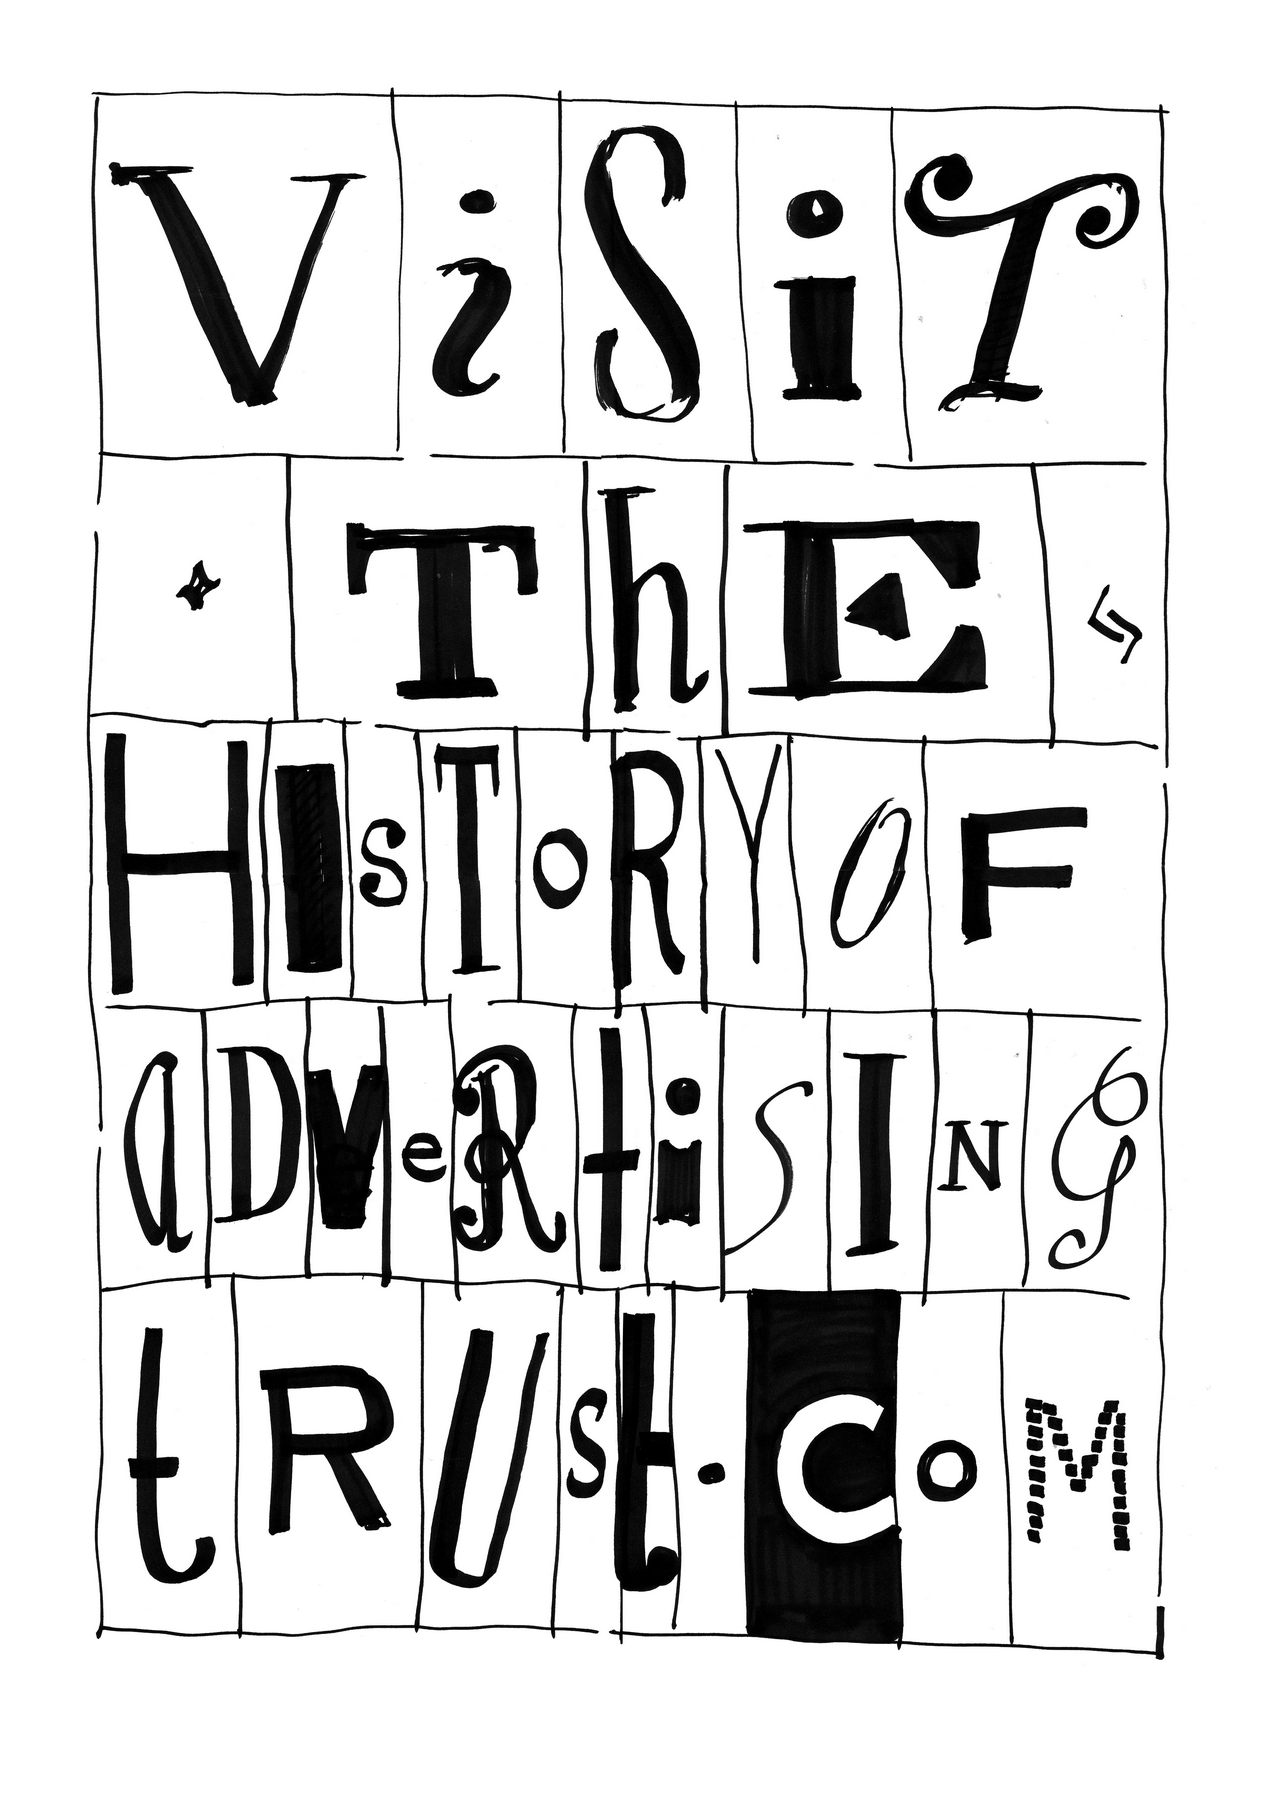 ViSiT
ThE
HIsToRY OF
aDVeRtiSING
tRUst.CoM